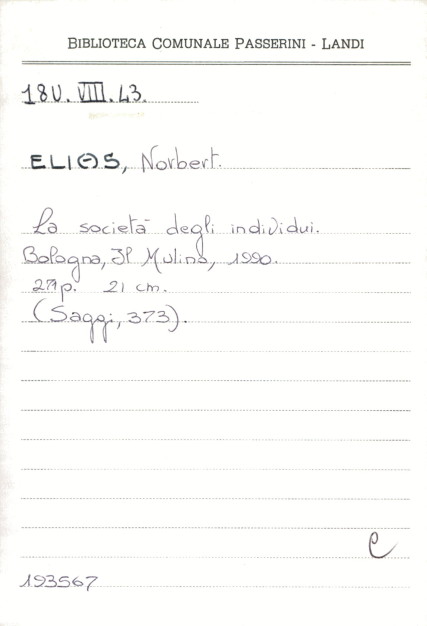 BIBLIOTECA COMUNALE PASSERINI - LANDI
18U. VIII. 43.
ELIAS, Norbert.
La società degli individui.
Bologna, Il Mulino, 1990.
271p. 21 cm.
(Saggi, 373).
C
193567